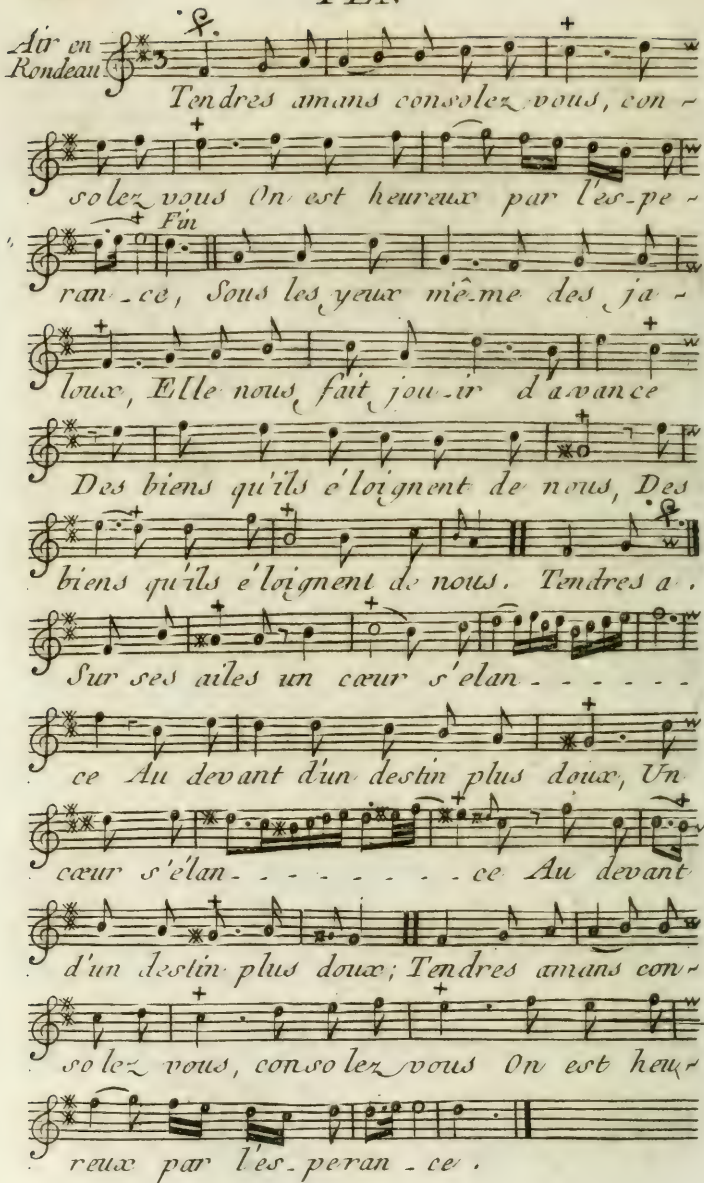 TEN
Air en
Rondeau 3
Tendres amans consolez vous, con -
solez vous On est heureux par l'es-pe -
Fin
ran - ce, Sous les yeux mê-me des ja -
loux, Elle nous fait jou-ir d'avance
Des biens qu'ils é'loignent de nous, Des
biens qu'ils é'loignent de nous. Tendres a.
Sur ses ailes un cœur s'elan - - - - - -
ce Au devant d'un destin plus doux, Un
cœur s'élan - - - - - - - - ce Au devant
d'un destin plus doux; Tendres amans con-
solez vous, consolez vous On est heu-
reux par l'es-peran-ce.